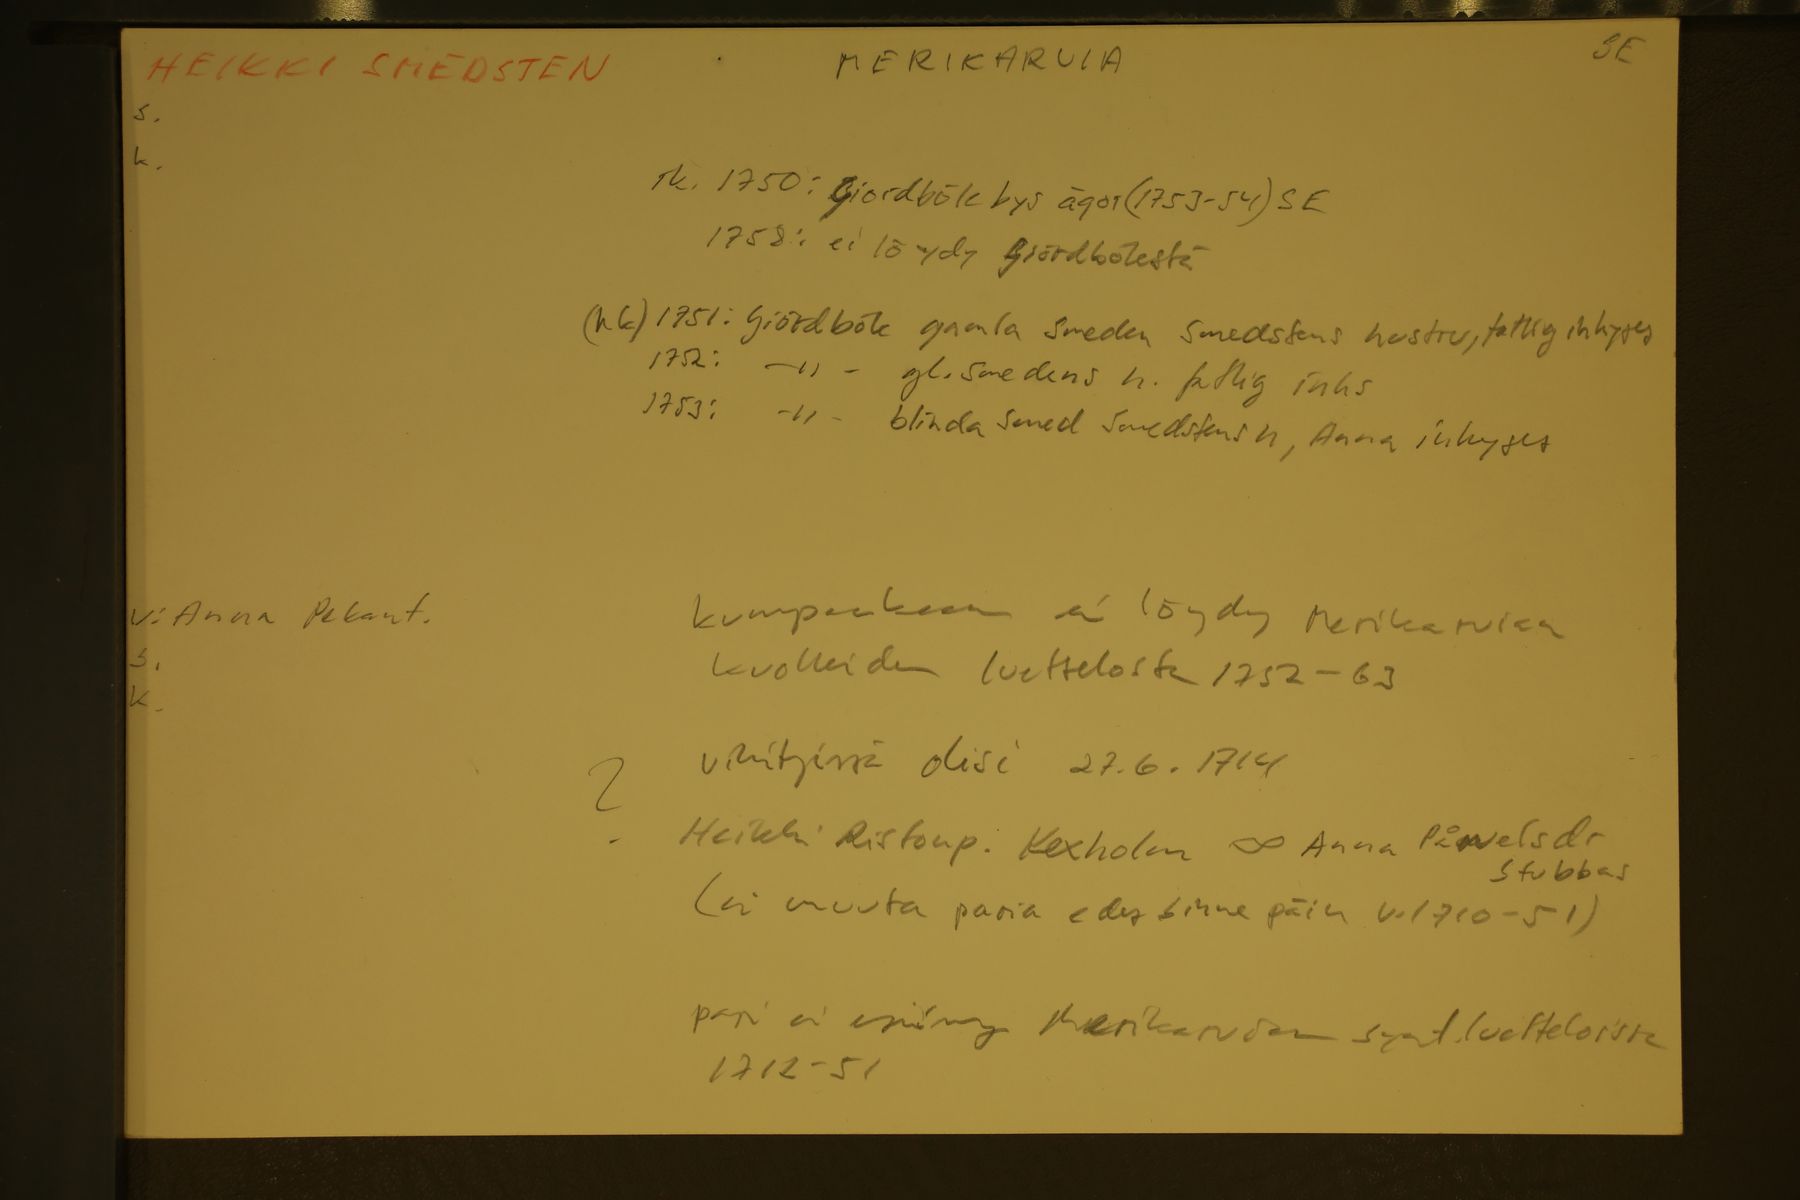 HEIKKI SMEDSTEN MERIKARVIA SE
s.
k.
rk. 1750: Giördbök bys ägor (1753-54) SE
1758: ei löydy Giördbölestä
(hk) 1751: Giördböle gamla smeden Smedstens hustru, fattig inhyses
1752: -"- gl. smedens h. fattig inhs
1753: -"- blinda smed Smedstens h, Anna inhyses
v: Anna Pekant. kumpaakaan ei löydy Merikarvian
s. kuolleiden luettelosta 1752-63
k.
vihityissä olisi 27.6.1714
? Heikki Ristonp. Kexholm ∞ Anna Påwelsdr
Stubbas
(ei muuta paria edes sinne päin v. 1710-51)
pari ei esiinny Merikarvian synt. luetteloissa
1712-51